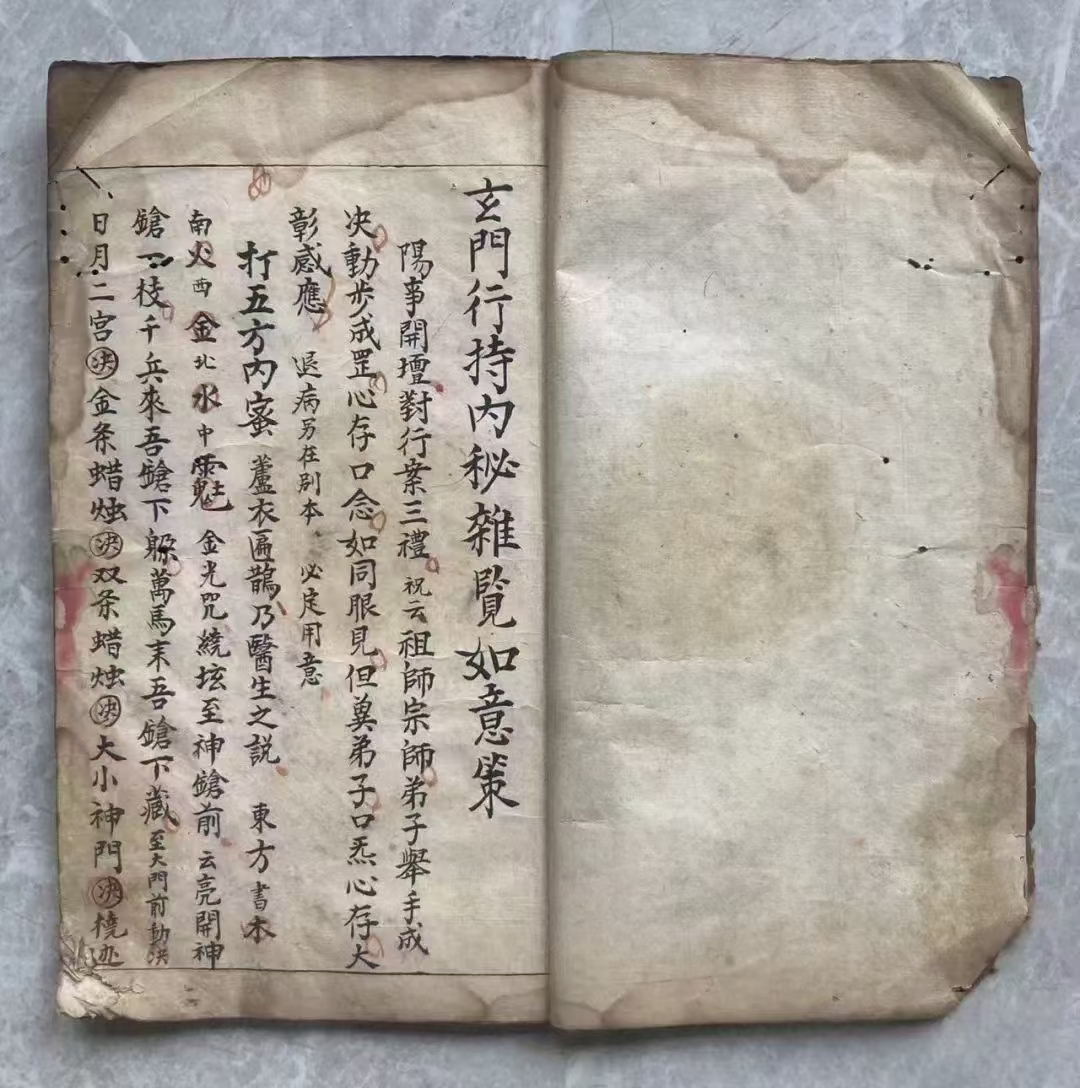 玄門行持内秘雜覽如意策
陽事開壇對行案三禮祝云祖師宗師弟子舉手成
决動步成罡心存口念如同眼見但奠弟子口炁心存大
彰感應 退病另在別本 必定用意
打五方内蜜 蘆衣匾鵲乃醫生之説 東方書木
南火西金北水中 金光咒繞垓至神鎗前云亮開神
鎗一枝千兵來吾鎗下躲萬馬来吾鎗下藏至大門前動决
日月二宫决金条蜡烛决双条蜡烛决大小神門决橈